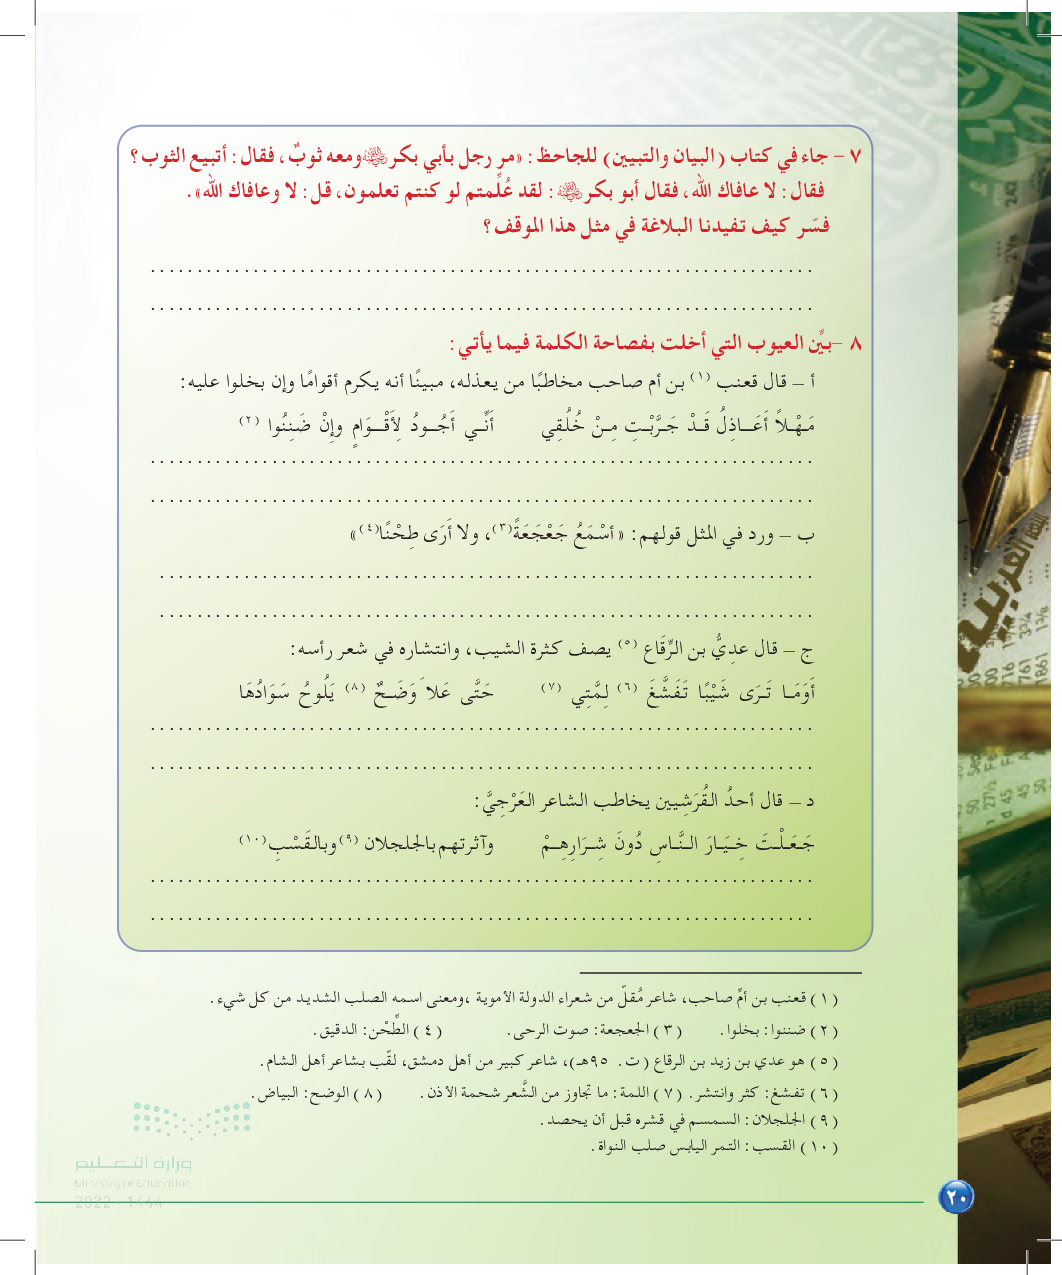 ٧ - جاء في كتاب (البيان والتبيين) للجاحظ: «مر رجل بأبي بكر ﷺ ومعه ثوبٌ، فقال: أتبيع الثوب؟
فقال: لا عافاك الله، فقال أبو بكر ﷺ: لقد عُلِّمتم لو كنتم تعلمون، قل: لا وعافاك الله».
فسّر كيف تفيدنا البلاغة في مثل هذا الموقف؟
٨ - بيِّن العيوب التي أخلت بفصاحة الكلمة فيما يأتي:
أ – قال قعنب (١) بن أم صاحب مخاطبًا من يعذله، مبينًا أنه يكرم أقوامًا وإن بخلوا عليه:
مَـهْـلاً أَعَـــاذِلُ قَــدْ جَـرَّبْـتِ مِــنْ خُلُـقِي أَنِّــي أَجُـــودُ لِأَقْـــوَامٍ وإِنْ ضَنِنُوا (٢)
ب – ورد في المثل قولهم: «أسْمَعُ جَعْجَعَةً(٣)، ولا أَرَى طِحْنًا(٤)»
ج – قال عدِيُّ بن الرِّقَاع (٥) يصف كثرة الشيب، وانتشاره في شعر رأسه:
أَوَمَــا تَــرَى شَيْبًا تَـفَـشَّغَ (٦) لِـمَّتِي (٧) حَتَّى عَلا وَضَــحٌ (٨) يَلُوحُ سَوَادُهَا
د – قال أحدُ الـقُرَشِيين يخاطب الشاعر العَرْجِيَّ:
جَـعَـلْـتَ خِـيَـارَ الـنَّـاسِ دُونَ شِــرَارِهِـــمْ وآثـرتـهم بـالجلجلان (٩) وبالـقَـسْـبِ(١٠)
(١) قعنب بن أمِّ صاحب، شاعر مُقلّ من شعراء الدولة الأموية، ومعنى اسمه الصلب الشديد من كل شيء.
(٢) ضننوا: بخلوا. (٣) الجعجعة: صوت الرحى. (٤) الطِّحْن: الدقيق.
(٥) هو عدي بن زيد بن الرقاع (ت. ٩٥هـ)، شاعر كبير من أهل دمشق، لقّب بشاعر أهل الشام.
(٦) تفشغ: كثر وانتشر. (٧) اللمة: ما تجاوز من الشَّعر شحمة الأذن. (٨) الوضح: البياض.
(٩) الجلجلان: السمسم في قشره قبل أن يحصد.
(١٠) القسب: التمر اليابس صلب النواة.
وزارة التعليم
Ministry of Education
2022 - 1444
٢٠